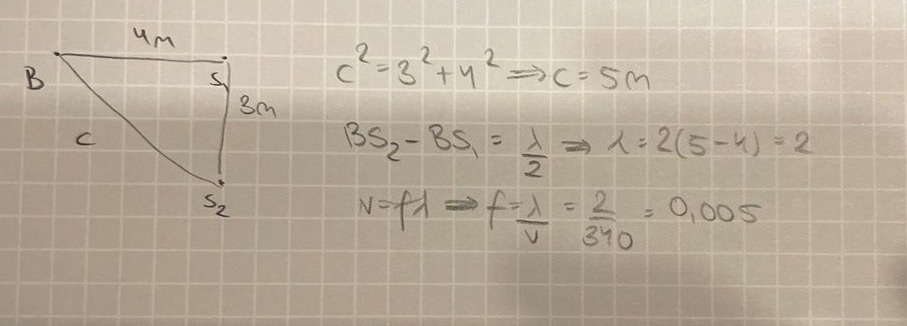 4m
B
S₁
3m
C
S₂
c² = 3² + 4² ⇒ c = 5m
BS₂ - BS₁ = λ/2 ⇒ λ = 2(5-4) = 2
v = fλ ⇒ f = λ/v = 2/340 = 0,005